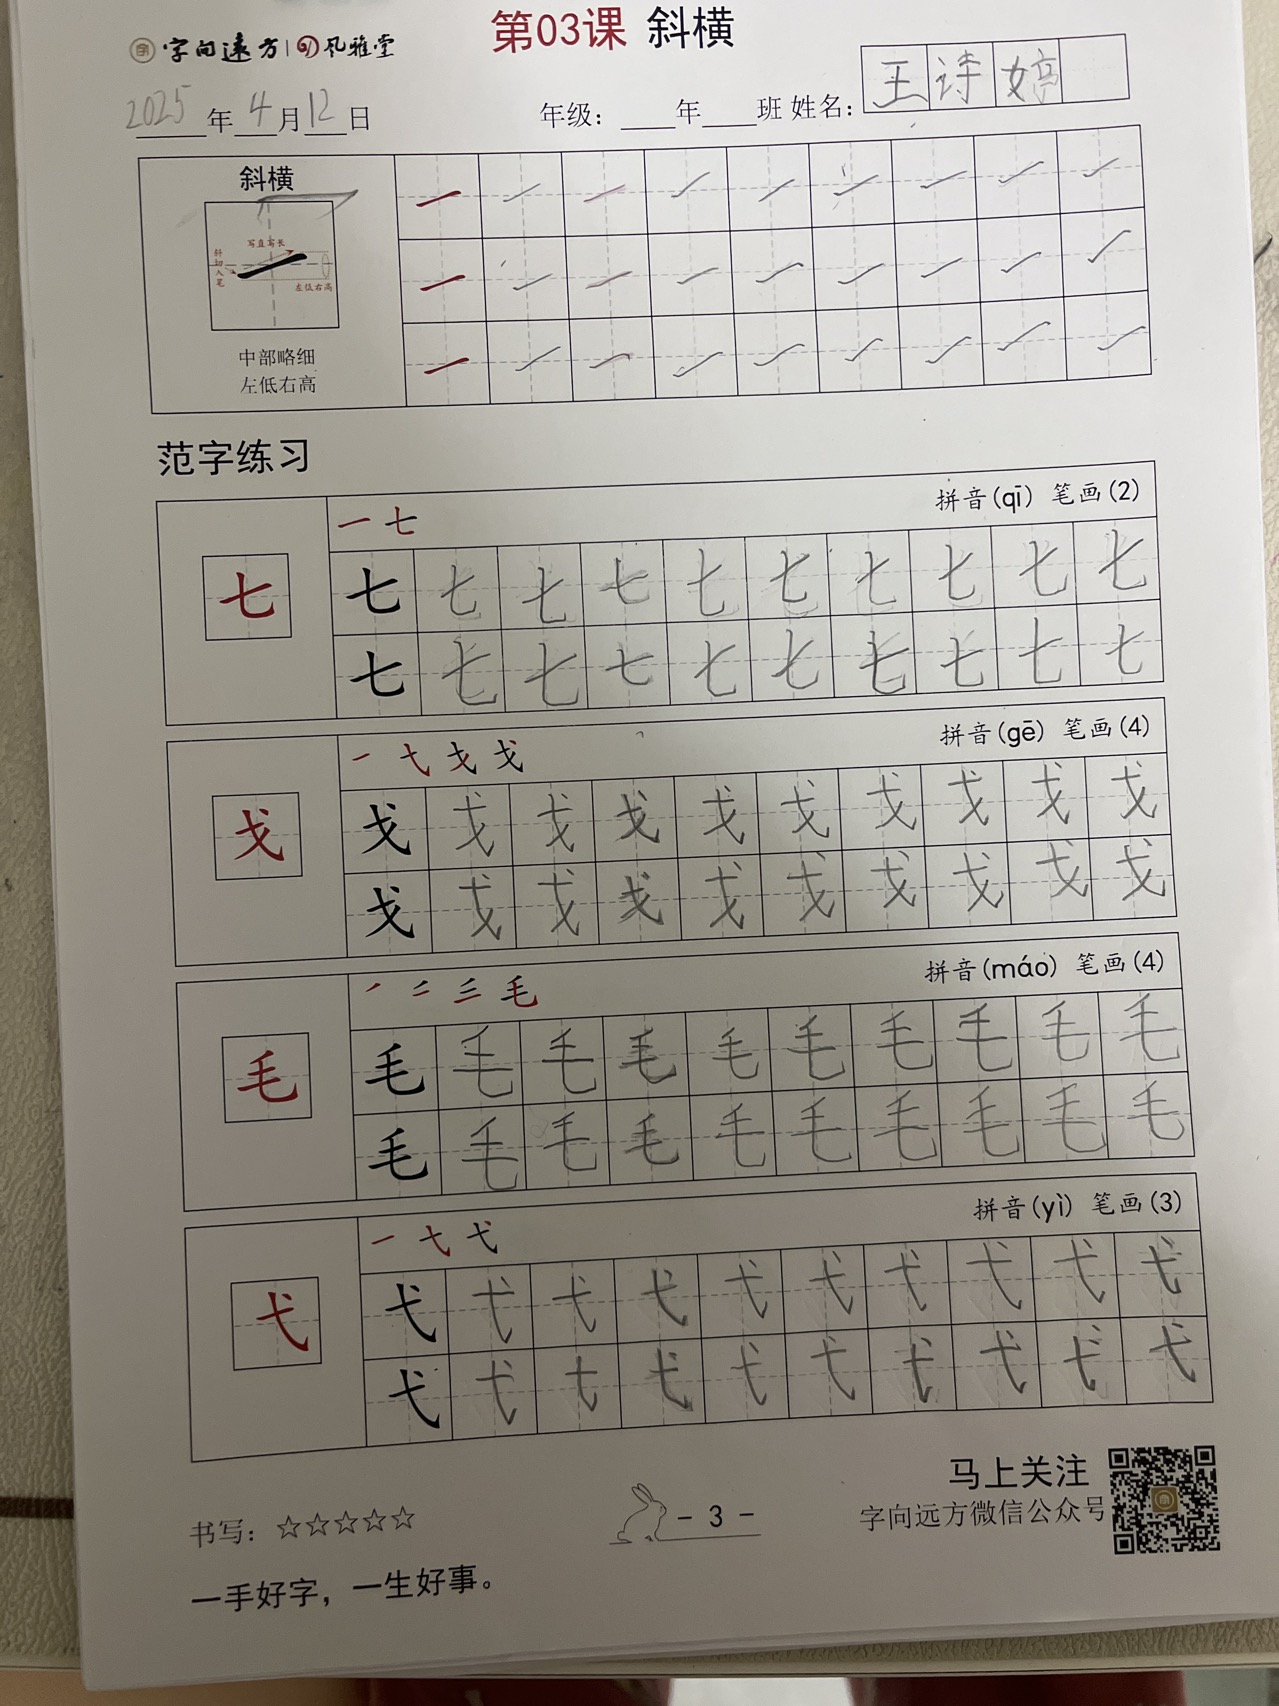 第03课 斜横
字向远方 风雅堂
2025年4月12日 年级：____年____班 姓名：王诗婷
斜横
写直写长
斜切入笔
左低右高
中部略细
左低右高
范字练习
一 七 拼音(qī) 笔画(2)
七 七 七 七 七 七 七 七 七 七 七
七 七 七 七 七 七 七 七 七 七
一 弋 戈 戈 拼音(gē) 笔画(4)
戈 戈 戈 戈 戈 戈 戈 戈 戈 戈 戈
戈 戈 戈 戈 戈 戈 戈 戈 戈 戈
毛 拼音(máo) 笔画(4)
毛 毛 毛 毛 毛 毛 毛 毛 毛 毛 毛
毛 毛 毛 毛 毛 毛 毛 毛 毛 毛
一 弋 拼音(yì) 笔画(3)
弋 弋 弋 弋 弋 弋 弋 弋 弋 弋 弋
弋 弋 弋 弋 弋 弋 弋 弋 弋 弋
马上关注
书写：☆☆☆☆☆ - 3 - 字向远方微信公众号
一手好字，一生好事。